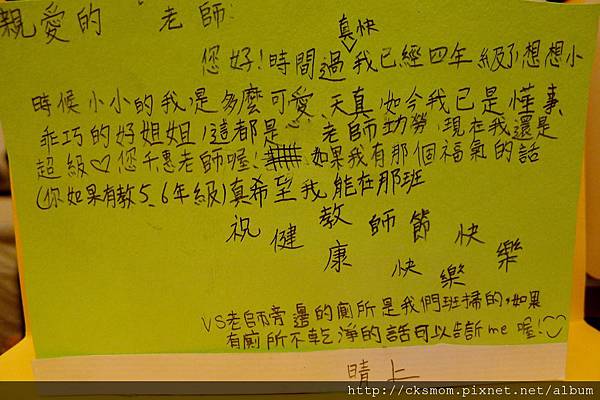 親愛的 老師:
您好!時間過真快我已經四年級了,想想小
時候小小的我,是多麼可愛、天真,如今我已是懂事、
乖巧的好姐姐,這都是 老師功勞,現在我還是
超級♡您千惠老師喔! 如果我有那個福氣的話
(你如果有教5、6年級)真希望我能在那班
祝 教師節快樂
健康快樂
VS老師旁邊的廁所是我們班掃的,如果
有廁所不乾淨的話可以告訴me喔!♡
晴上
http://cksmom.pixnet.net/album